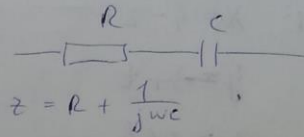 R C
z = R + 1/jwc